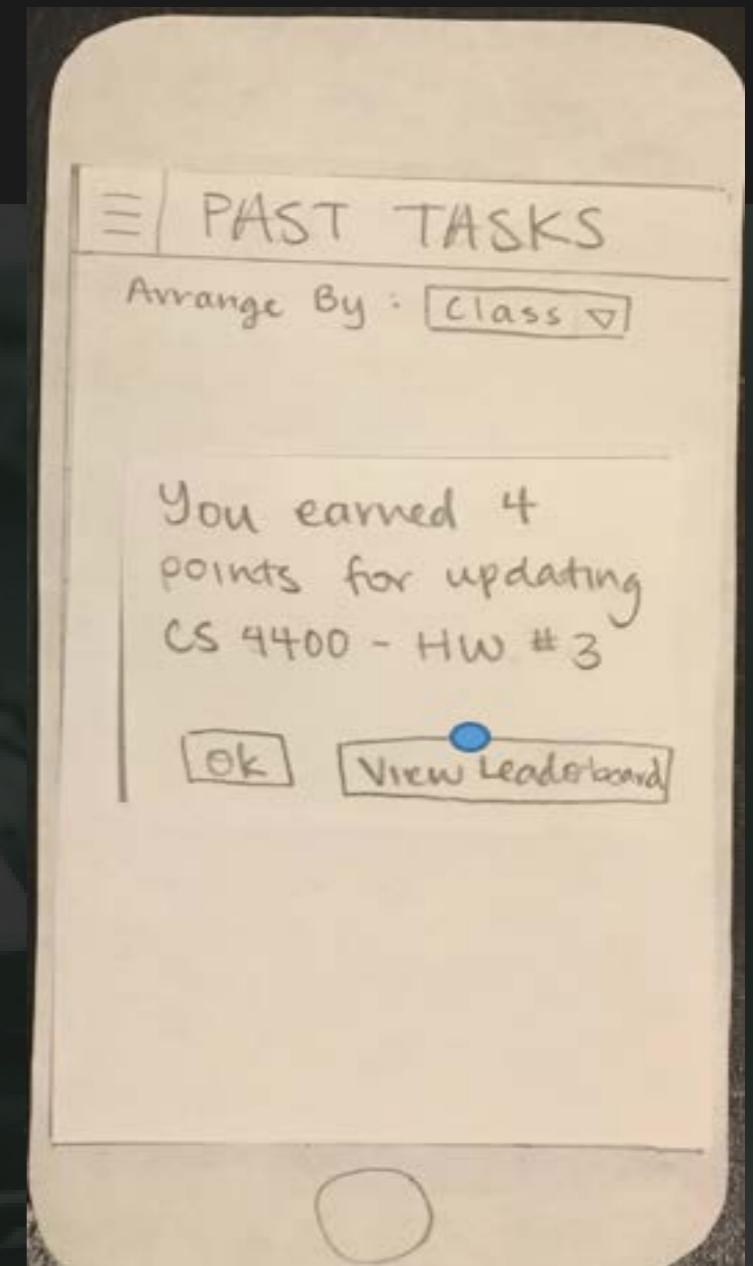 PAST TASKS
Arrange By : Class
You earned 4
points for updating
CS 4400 - HW #3
Ok View Leaderboard